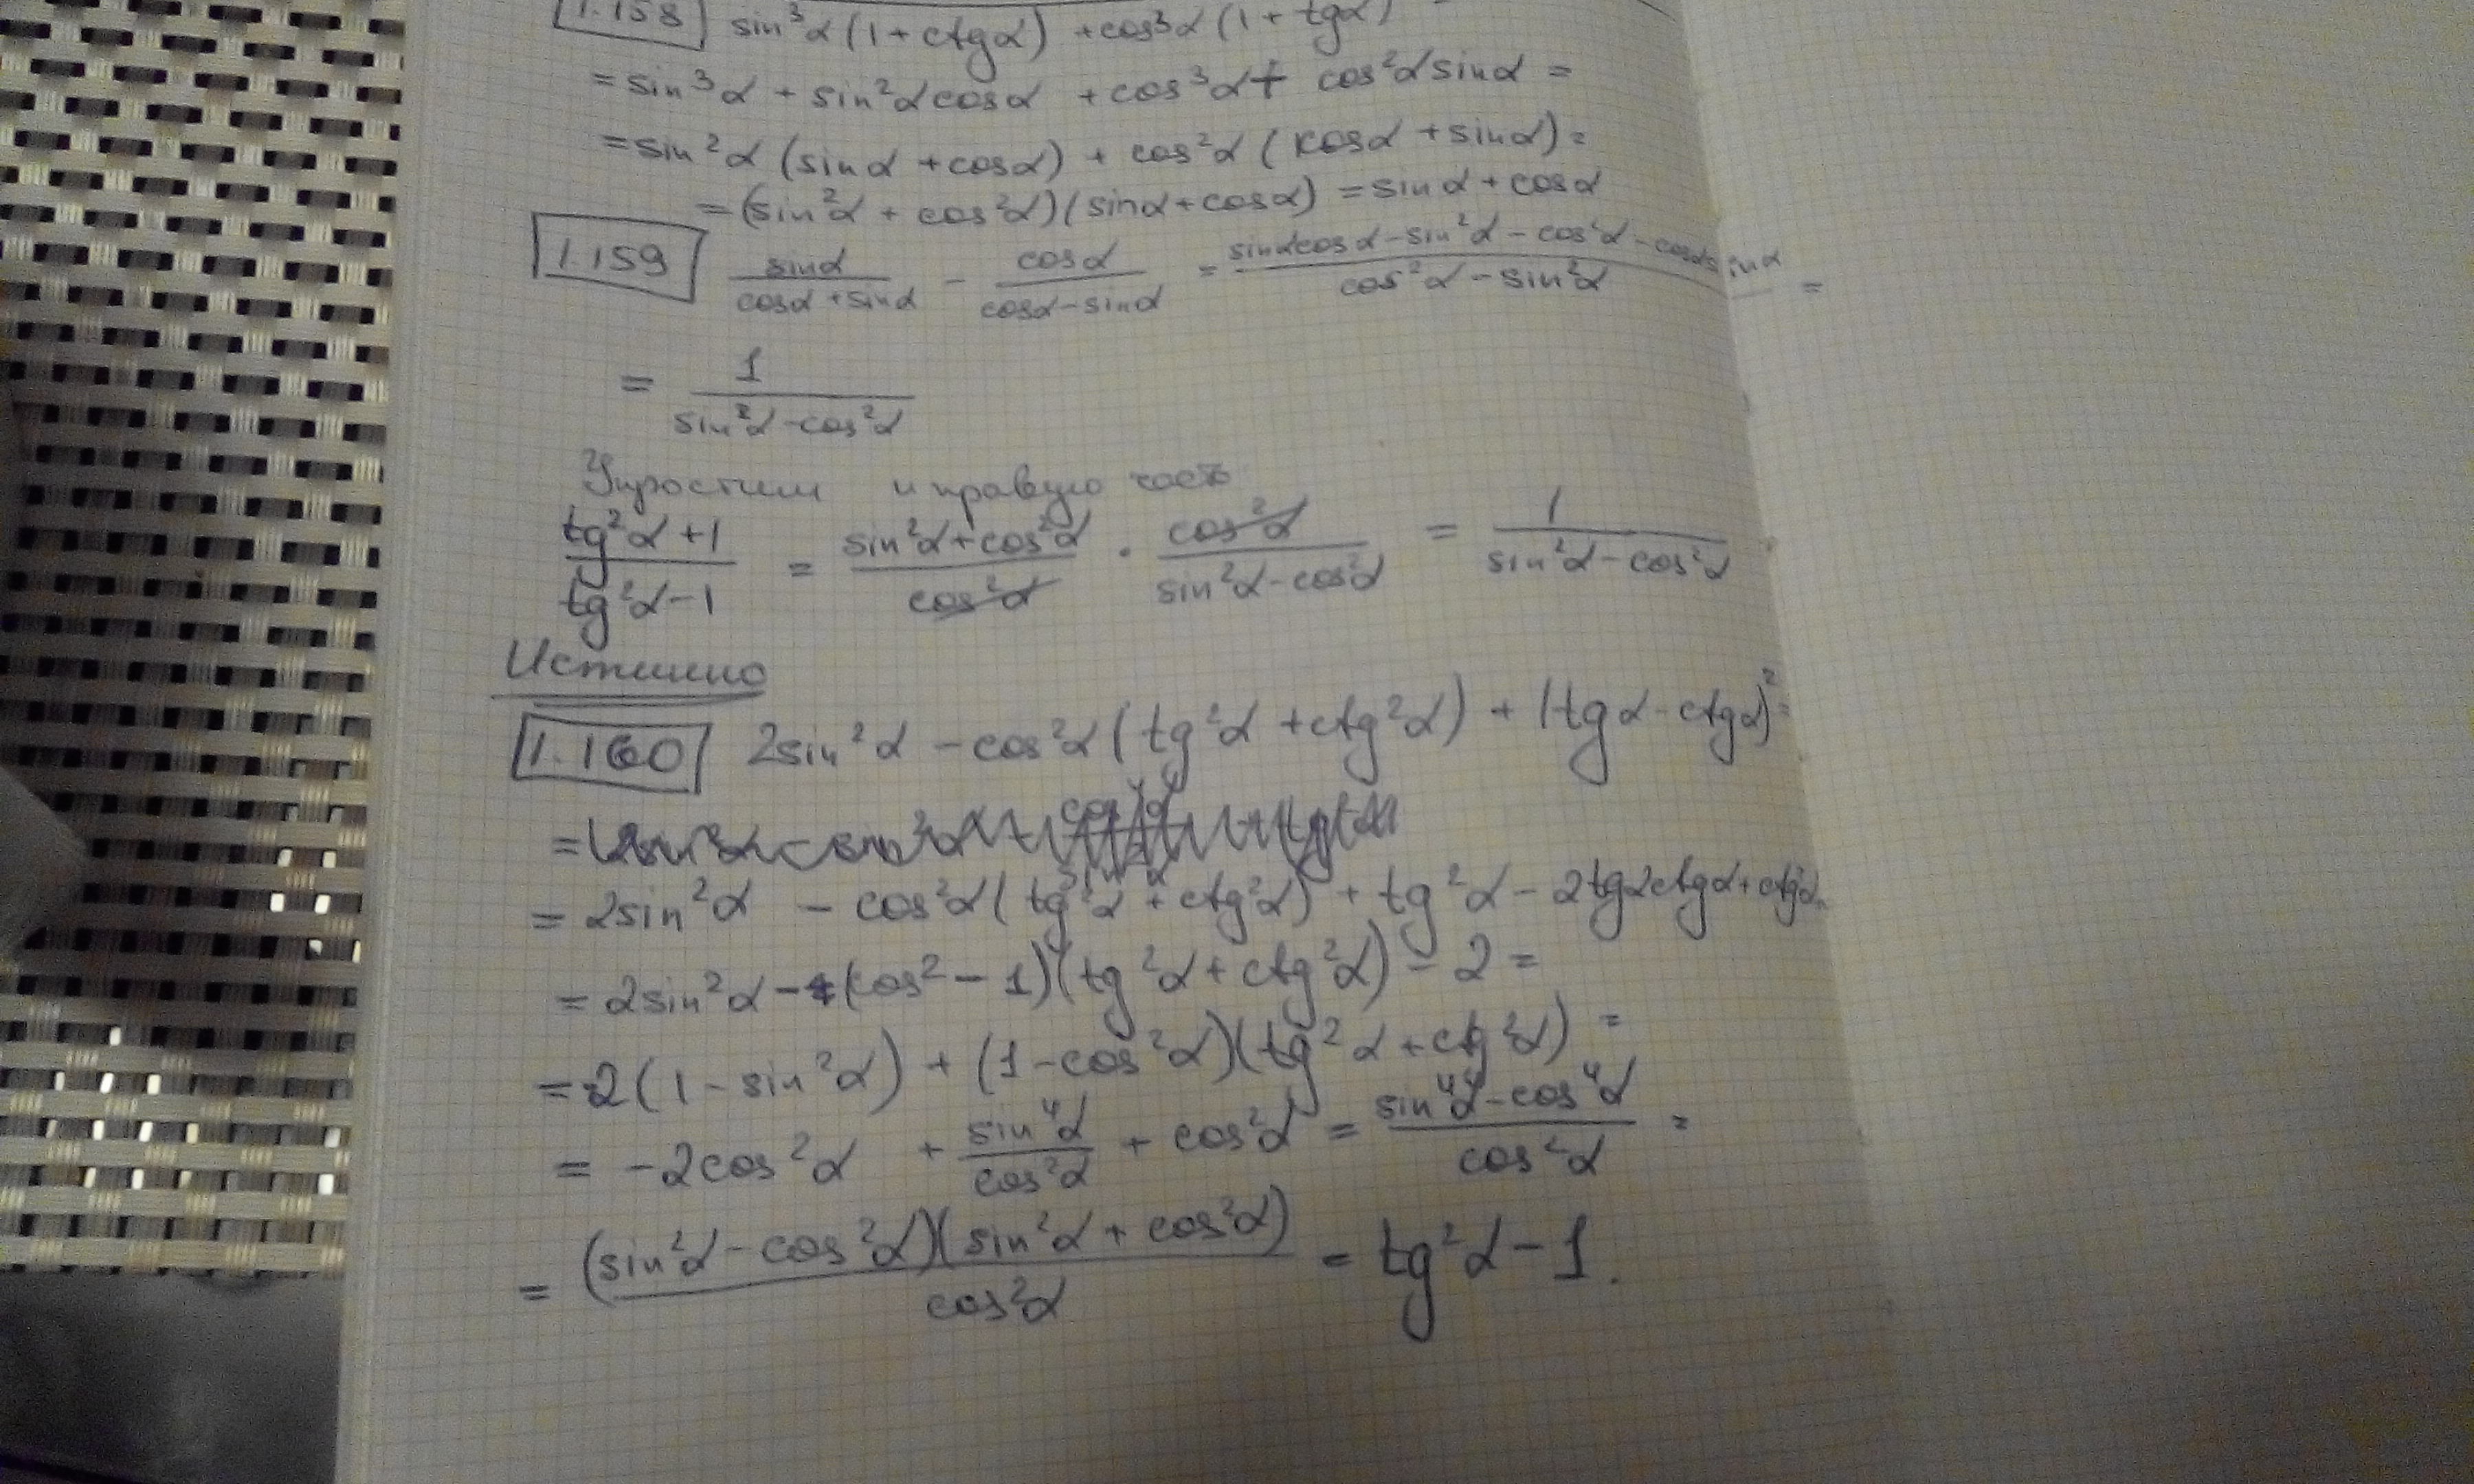 1.158 sin³α(1+ctgα) + cos³α(1+tgα) =
= sin³α + sin²αcosα + cos³α + cos²αsinα =
= sin²α (sinα + cosα) + cos²α (cosα + sinα) =
= (sin²α + cos²α)(sinα + cosα) = sinα + cosα
1.159 sinα/(cosα + sinα) - cosα/(cosα - sinα) = (sinαcosα - sin²α - cos²α - cosαsinα)/(cos²α - sin²α) =
= 1/(sin²α - cos²α)
Упростим и правую часть
(tg²α + 1)/(tg²α - 1) = (sin²α + cos²α)/cos²α · cos²α/(sin²α - cos²α) = 1/(sin²α - cos²α)
Истинно
1.160 2sin²α - cos²α(tg²α + ctg²α) + (tgα - ctgα)² =
= 2sin²α - cos²α(tg²α + ctg²α) + tg²α - 2tgαctgα + ctg²α =
= 2sin²α - (cos² - 1)(tg²α + ctg²α) - 2 =
= -2(1 - sin²α) + (1 - cos²α)(tg²α + ctg²α) =
= -2cos²α + sin⁴α/cos²α + cos²α = (sin⁴α - cos⁴α)/cos²α =
= (sin²α - cos²α)(sin²α + cos²α)/cos²α = tg²α - 1.